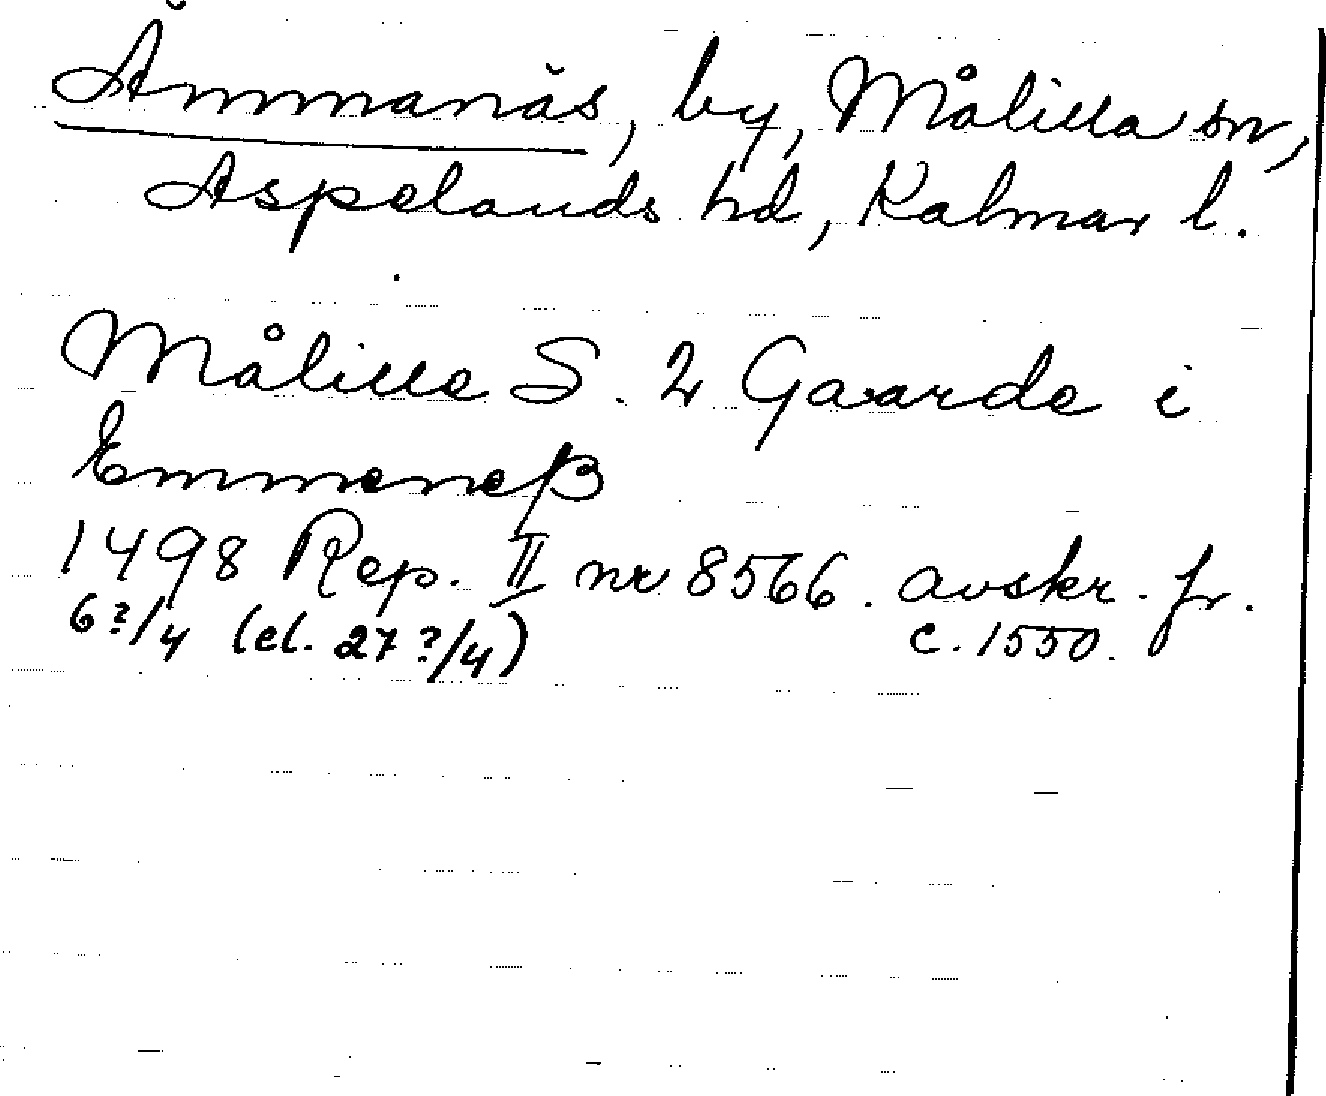 Ämmanäs, by, Målilla sn,
Aspelands hd, Kalmar l.
Målille S. 2 Gaarde i
Emmeneß
1498 Rep. II nr 8566. avskr. fr.
6?/4 (el. 27?/4) c. 1550.